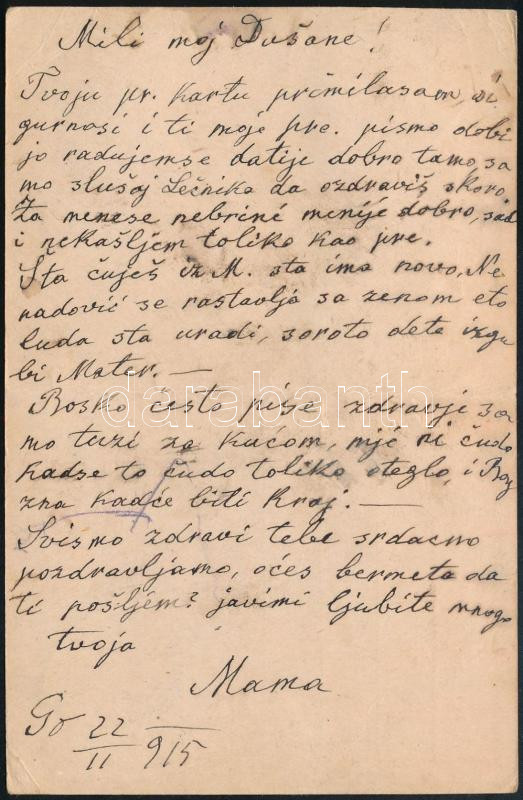 Mili moj Dušane!
Tvoju pr. kartu primilasam, si
gurnosi i ti moje pre. pismo dobi
jo radujemse datije dobro tamo, sa
mo slušaj Lečnika da ozdraviš skoro.
Za menese nebrini menije dobro, sad
i nekašljem toliko kao pre.
Šta čuješ iz M. sta ima novo, Ne
nadović se rastavlja sa zenom eto
luda sta uradi, soroto dete izgu
bi Mater. —
Bosko često piše zdravje sa
mo tuzi za kućom, nije ni čudo
kadse to čudo toliko oteglo, i Bog
zna kadće biti kraj. —
Svismo zdravi tebe srdacno
pozdravljamo, oćes bermeta da
ti pošljem? javimi ljubite mnogo
tvoja
Mama
Go 22/11 915
darabanth